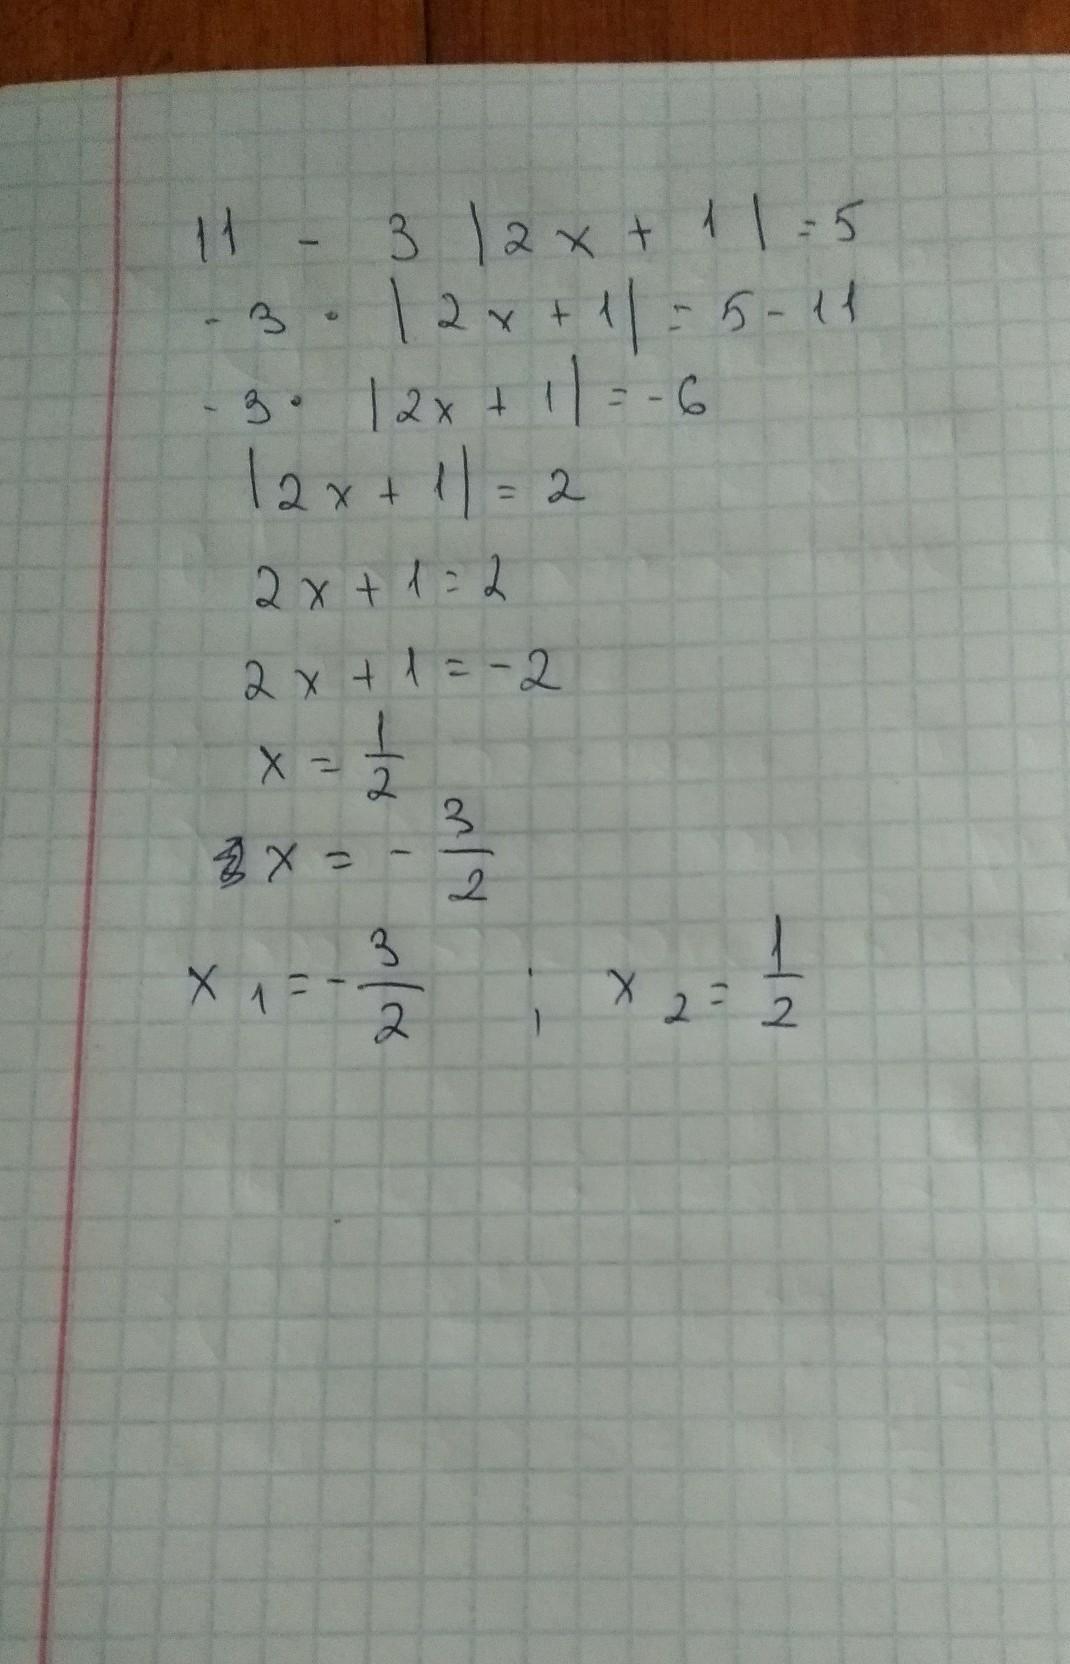 11 - 3 |2x + 1| = 5
- 3 · |2x + 1| = 5 - 11
- 3 · |2x + 1| = - 6
|2x + 1| = 2
2x + 1 = 2
2x + 1 = - 2
x = 1/2
x = - 3/2
x₁ = - 3/2 ; x₂ = 1/2